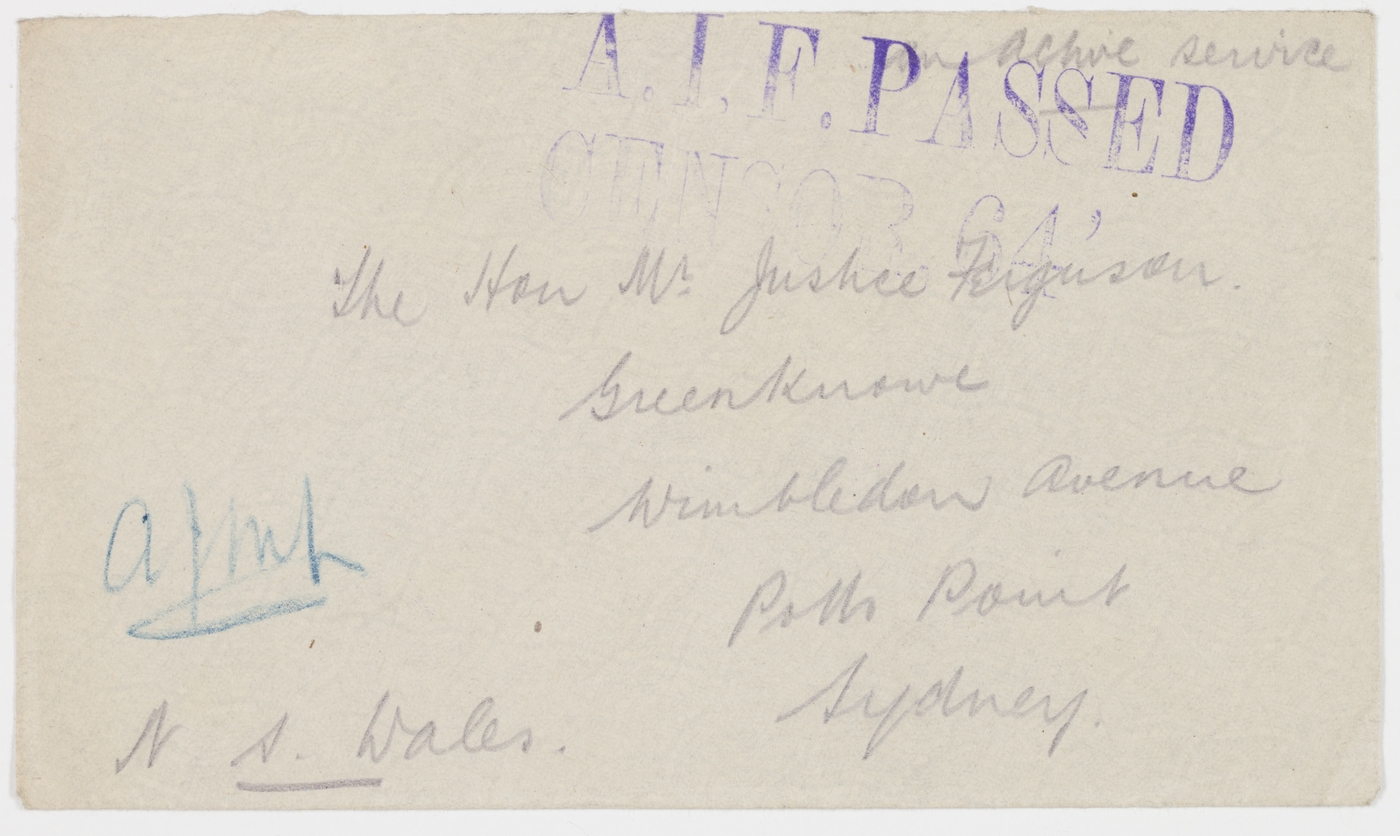 on active service
A.I.F. PASSED
CENSOR 64'
The Hon Mr Justice Ferguson.
Greenknowe
Wimbledon Avenue
Potts Point
Sydney.
N S. Wales.